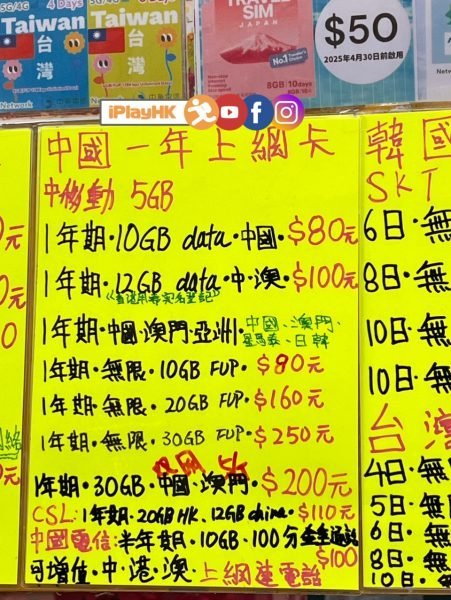 5G/4G
4 Days
Taiwan
台
灣
5G/4G
Taiwan
台
灣
Network
TRAVEL
SIM
JAPAN
No.1 Traveler's Choice
8GB/10days
$50
2025年4月30日前啟用
iPlayHK
中國一年上網卡
中移動 5GB
1年期·10GB data·中國·$80元
1年期·12GB data·中·澳·$100元
1年期·中國·澳門·亞洲·中國、澳門、
星馬泰、日韓
1年期·無限·10GB FUP·$90元
1年期·無限·20GB FUP·$160元
1年期·無限·30GB FUP·$250元
5G
1年期·30GB·中國·澳門·$200元
CSL:1年期·20GB HK、12GB china·$110元
中國電信:半年期·10GB·100分
$100
可增值·中·港·澳·上網連電話
韓國
SKT
6日·無
8日·無
10日·無
10日·無
台灣
4日·無
5日·無
6日·無
8日·無
10日·無
元
元
0
元